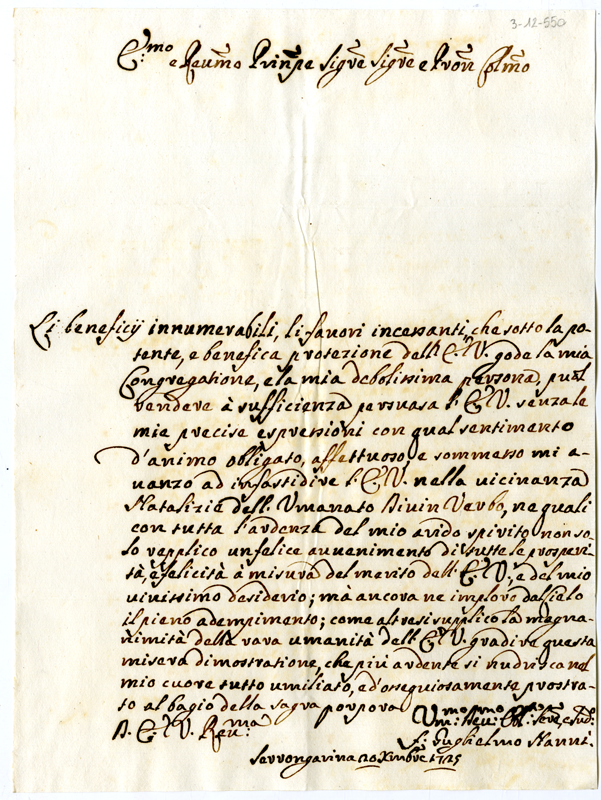 3-12-550
E.mo
e Reu.mo Prin.pe Sig.re Sig.re e Pron Col.mo
Li beneficij innumerabili, li fauori incessanti, che sotto la po-
tente, e benefica protezione dell'E.V. gode la mia
Congregatione, e la mia debolissima persona, può
rendere à sufficienza persuasa l'E.V. senza le
mie precise espressioni con qual sentimento
d'animo obligato, affettuoso, e sommesso mi a-
uanzo ad infastidire l'E.V. nella uicinanza
Natalizia dell'Umanato Diuin Verbo, ne quali
con tutta l'ardenza del mio arido spirito non so-
lo repplico un felice auuenimento di tutte le prosperi-
tà, e felicità à misura del merito dell'E.V., e del mio
uiuissimo desiderio; mà ancora ne imploro dal Cielo
il pieno adempimento; come altresi supplico la magna-
nimità della rara umanità dell'E.V. gradire questa
misera dimostratione, che più ardente si nudrisca nel
mio cuore tutto umiliato, ed'ossequiosamente prostra-
to al bagio della sagra porpora
D. E. V. Reu.ma
Um.mo Deu.mo Obl.mo Serv.e
F. Guglielmo Nanni
Serrongarina 20 Xmbre 1725